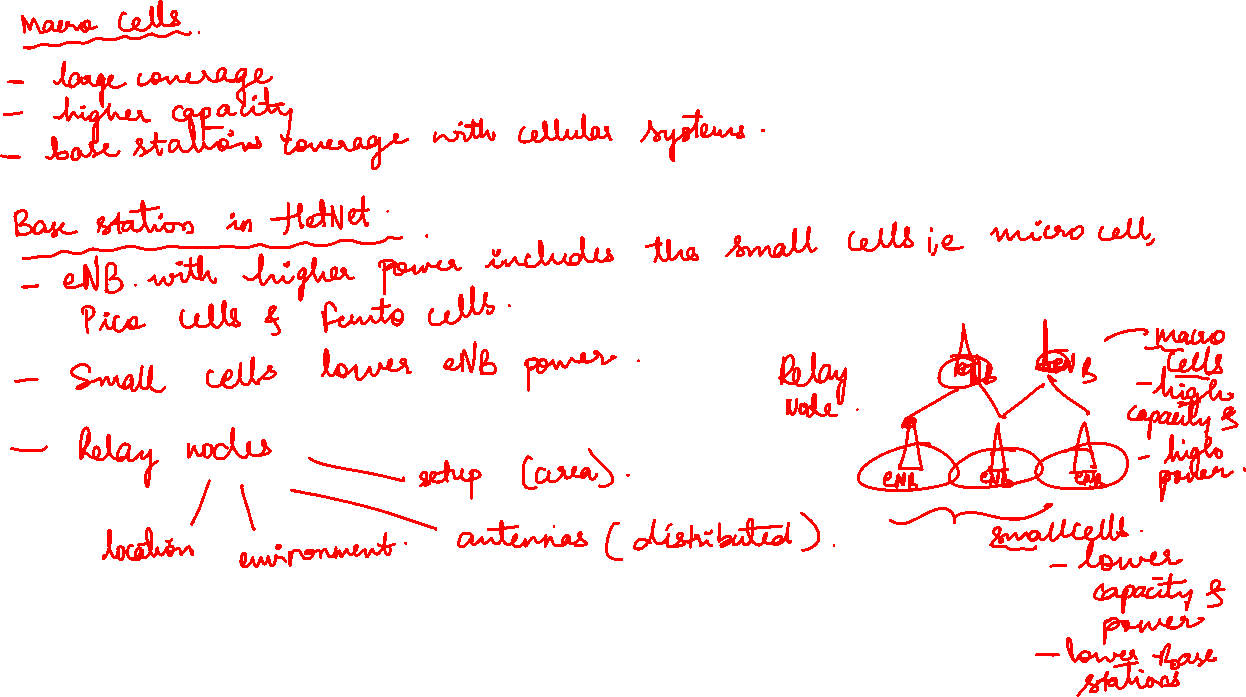 Macro Cells.
- large coverage
- higher capacity
- base stations coverage with cellular systems.
Base station in HetNet.
- eNB with higher power includes the small cells i,e micro cell,
Pico cells & femto cells.
- Small cells lower eNB power.
- Relay nodes
setup (area).
location
environment.
antennas (distributed).
Relay
Node.
eNB
eNB
macro
cells
- high
capacity &
- high
power.
eNB
eNB
eNB
small cells.
- lower
capacity &
power
- lower base
stations